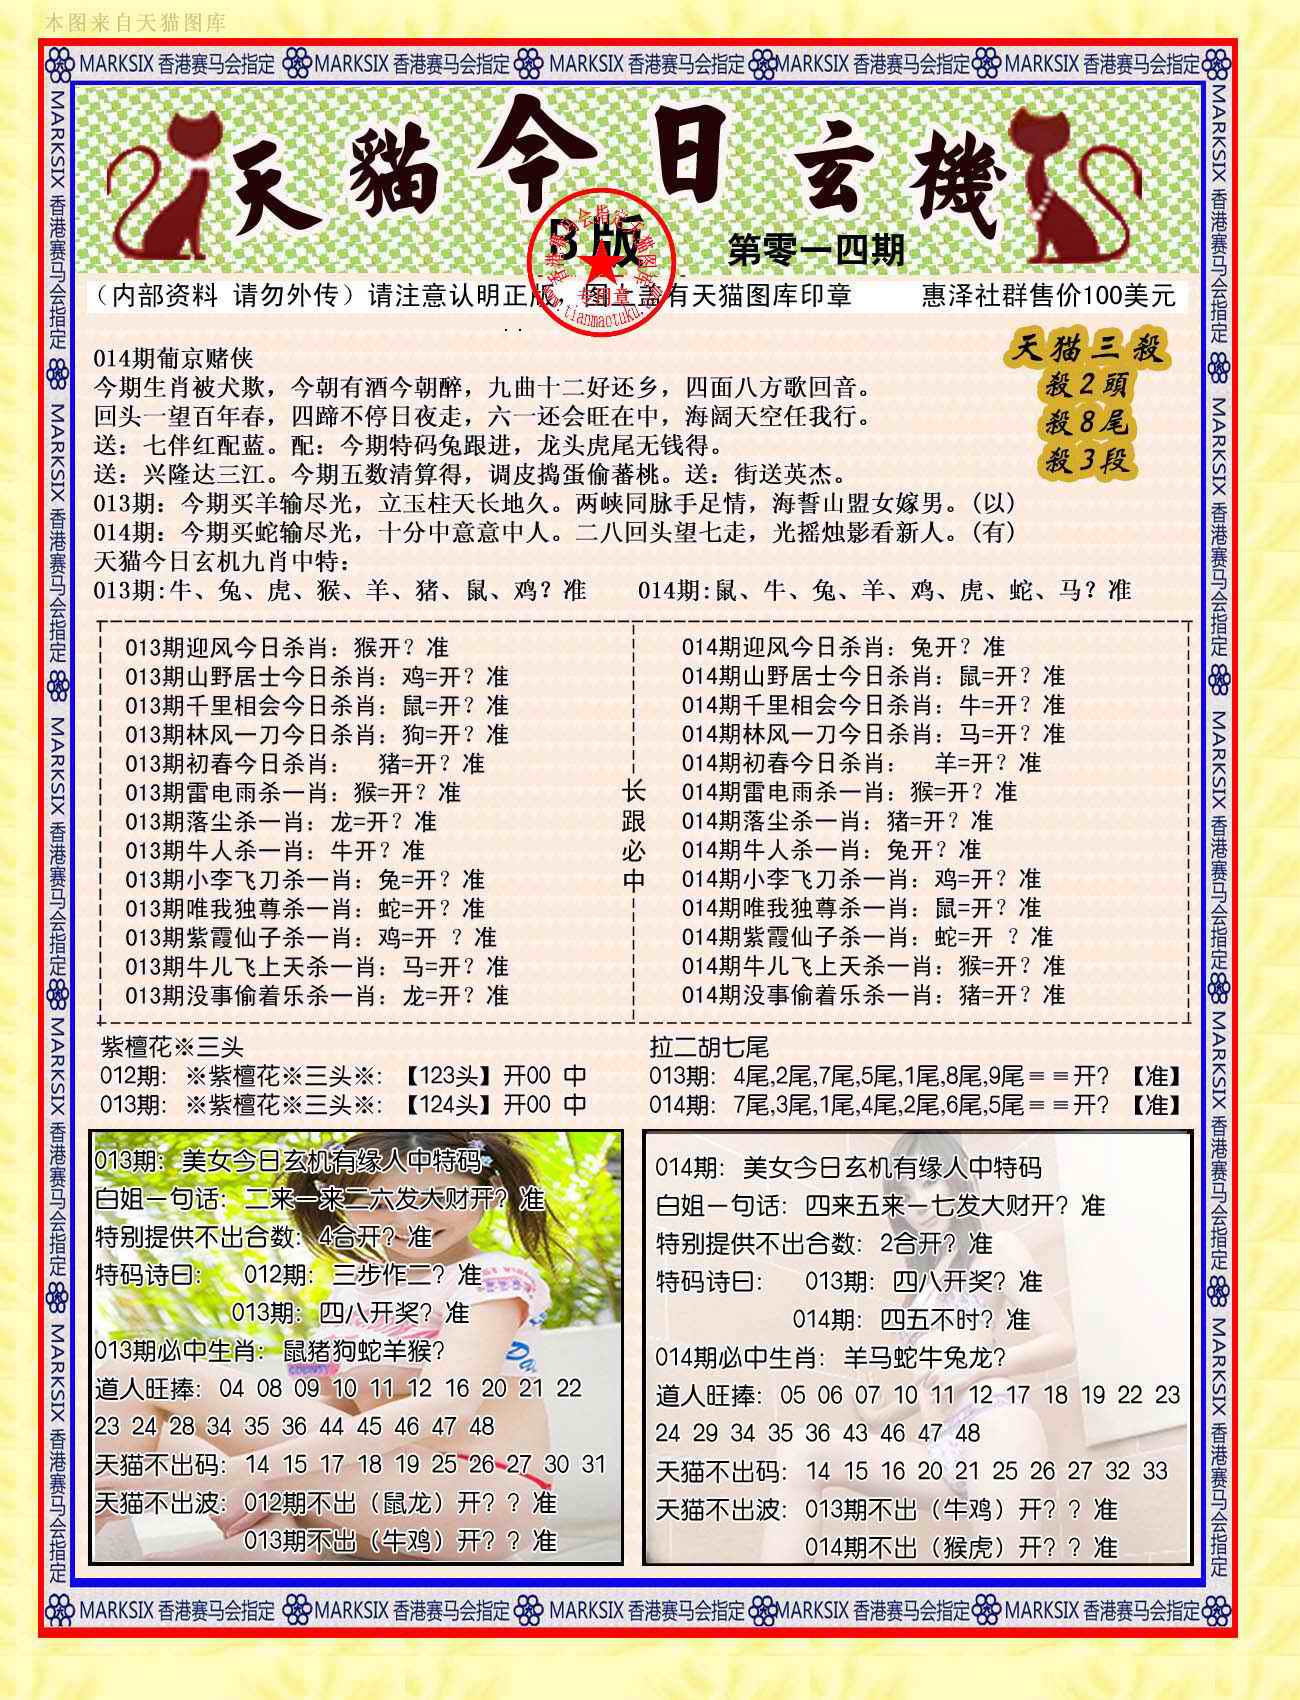 本图来自天猫图库
MARKSIX 香港赛马会指定 MARKSIX 香港赛马会指定 MARKSIX 香港赛马会指定 MARKSIX 香港赛马会指定 MARKSIX 香港赛马会指定
天貓今日玄機
B版
第零一四期
专用章
www.tianmaotuku.
（内部资料 请勿外传）请注意认明正版，图上盖有天猫图库印章 惠泽社群售价100美元
天猫三殺
殺2頭
殺8尾
殺3段
014期葡京赌侠
今期生肖被犬欺，今朝有酒今朝醉，九曲十二好还乡，四面八方歌回音。
回头一望百年春，四蹄不停日夜走，六一还会旺在中，海阔天空任我行。
送：七伴红配蓝。配：今期特码兔跟进，龙头虎尾无钱得。
送：兴隆达三江。今期五数清算得，调皮捣蛋偷蕃桃。送：街送英杰。
013期：今期买羊输尽光，立玉柱天长地久。两峡同脉手足情，海誓山盟女嫁男。(以)
014期：今期买蛇输尽光，十分中意意中人。二八回头望七走，光摇烛影看新人。(有)
天猫今日玄机九肖中特：
013期:牛、兔、虎、猴、羊、猪、鼠、鸡？准 014期:鼠、牛、兔、羊、鸡、虎、蛇、马？准
013期迎风今日杀肖：猴开？准
013期山野居士今日杀肖：鸡=开？准
013期千里相会今日杀肖：鼠=开？准
013期林风一刀今日杀肖：狗=开？准
013期初春今日杀肖： 猪=开？准
013期雷电雨杀一肖：猴=开？准
013期落尘杀一肖：龙=开？准
013期牛人杀一肖：牛开？准
013期小李飞刀杀一肖：兔=开？准
013期唯我独尊杀一肖：蛇=开？准
013期紫霞仙子杀一肖：鸡=开 ？准
013期牛儿飞上天杀一肖：马=开？准
013期没事偷着乐杀一肖：龙=开？准
长
跟
必
中
014期迎风今日杀肖：兔开？准
014期山野居士今日杀肖：鼠=开？准
014期千里相会今日杀肖：牛=开？准
014期林风一刀今日杀肖：马=开？准
014期初春今日杀肖： 羊=开？准
014期雷电雨杀一肖：猴=开？准
014期落尘杀一肖：猪=开？准
014期牛人杀一肖：兔开？准
014期小李飞刀杀一肖：鸡=开？准
014期唯我独尊杀一肖：鼠=开？准
014期紫霞仙子杀一肖：蛇=开 ？准
014期牛儿飞上天杀一肖：猴=开？准
014期没事偷着乐杀一肖：猪=开？准
紫檀花※三头
012期: ※紫檀花※三头※: 【123头】开00 中
013期: ※紫檀花※三头※: 【124头】开00 中
拉二胡七尾
013期: 4尾,2尾,7尾,5尾,1尾,8尾,9尾≡≡开? 【准】
014期: 7尾,3尾,1尾,4尾,2尾,6尾,5尾≡≡开? 【准】
013期: 美女今日玄机有缘人中特码
白姐一句话: 二来一来二六发大财开? 准
特别提供不出合数: 4合开? 准
特码诗曰: 012期: 三步作二? 准
013期: 四八开奖? 准
013期必中生肖: 鼠猪狗蛇羊猴?
道人旺捧: 04 08 09 10 11 12 16 20 21 22
23 24 28 34 35 36 44 45 46 47 48
天猫不出码: 14 15 17 18 19 25 26 27 30 31
天猫不出波: 012期不出（鼠龙）开? ? 准
013期不出（牛鸡）开? ? 准
014期: 美女今日玄机有缘人中特码
白姐一句话: 四来五来一七发大财开? 准
特别提供不出合数: 2合开? 准
特码诗曰: 013期: 四八开奖? 准
014期: 四五不时? 准
014期必中生肖: 羊马蛇牛兔龙?
道人旺捧: 05 06 07 10 11 12 17 18 19 22 23
24 29 34 35 36 43 46 47 48
天猫不出码: 14 15 16 20 21 25 26 27 32 33
天猫不出波: 013期不出（牛鸡）开? ? 准
014期不出（猴虎）开? ? 准
MARKSIX 香港赛马会指定 MARKSIX 香港赛马会指定 MARKSIX 香港赛马会指定 MARKSIX 香港赛马会指定 MARKSIX 香港赛马会指定
MARKSIX 香港赛马会指定 MARKSIX 香港赛马会指定 MARKSIX 香港赛马会指定 MARKSIX 香港赛马会指定 MARKSIX 香港赛马会指定
MARKSIX 香港赛马会指定 MARKSIX 香港赛马会指定 MARKSIX 香港赛马会指定 MARKSIX 香港赛马会指定 MARKSIX 香港赛马会指定